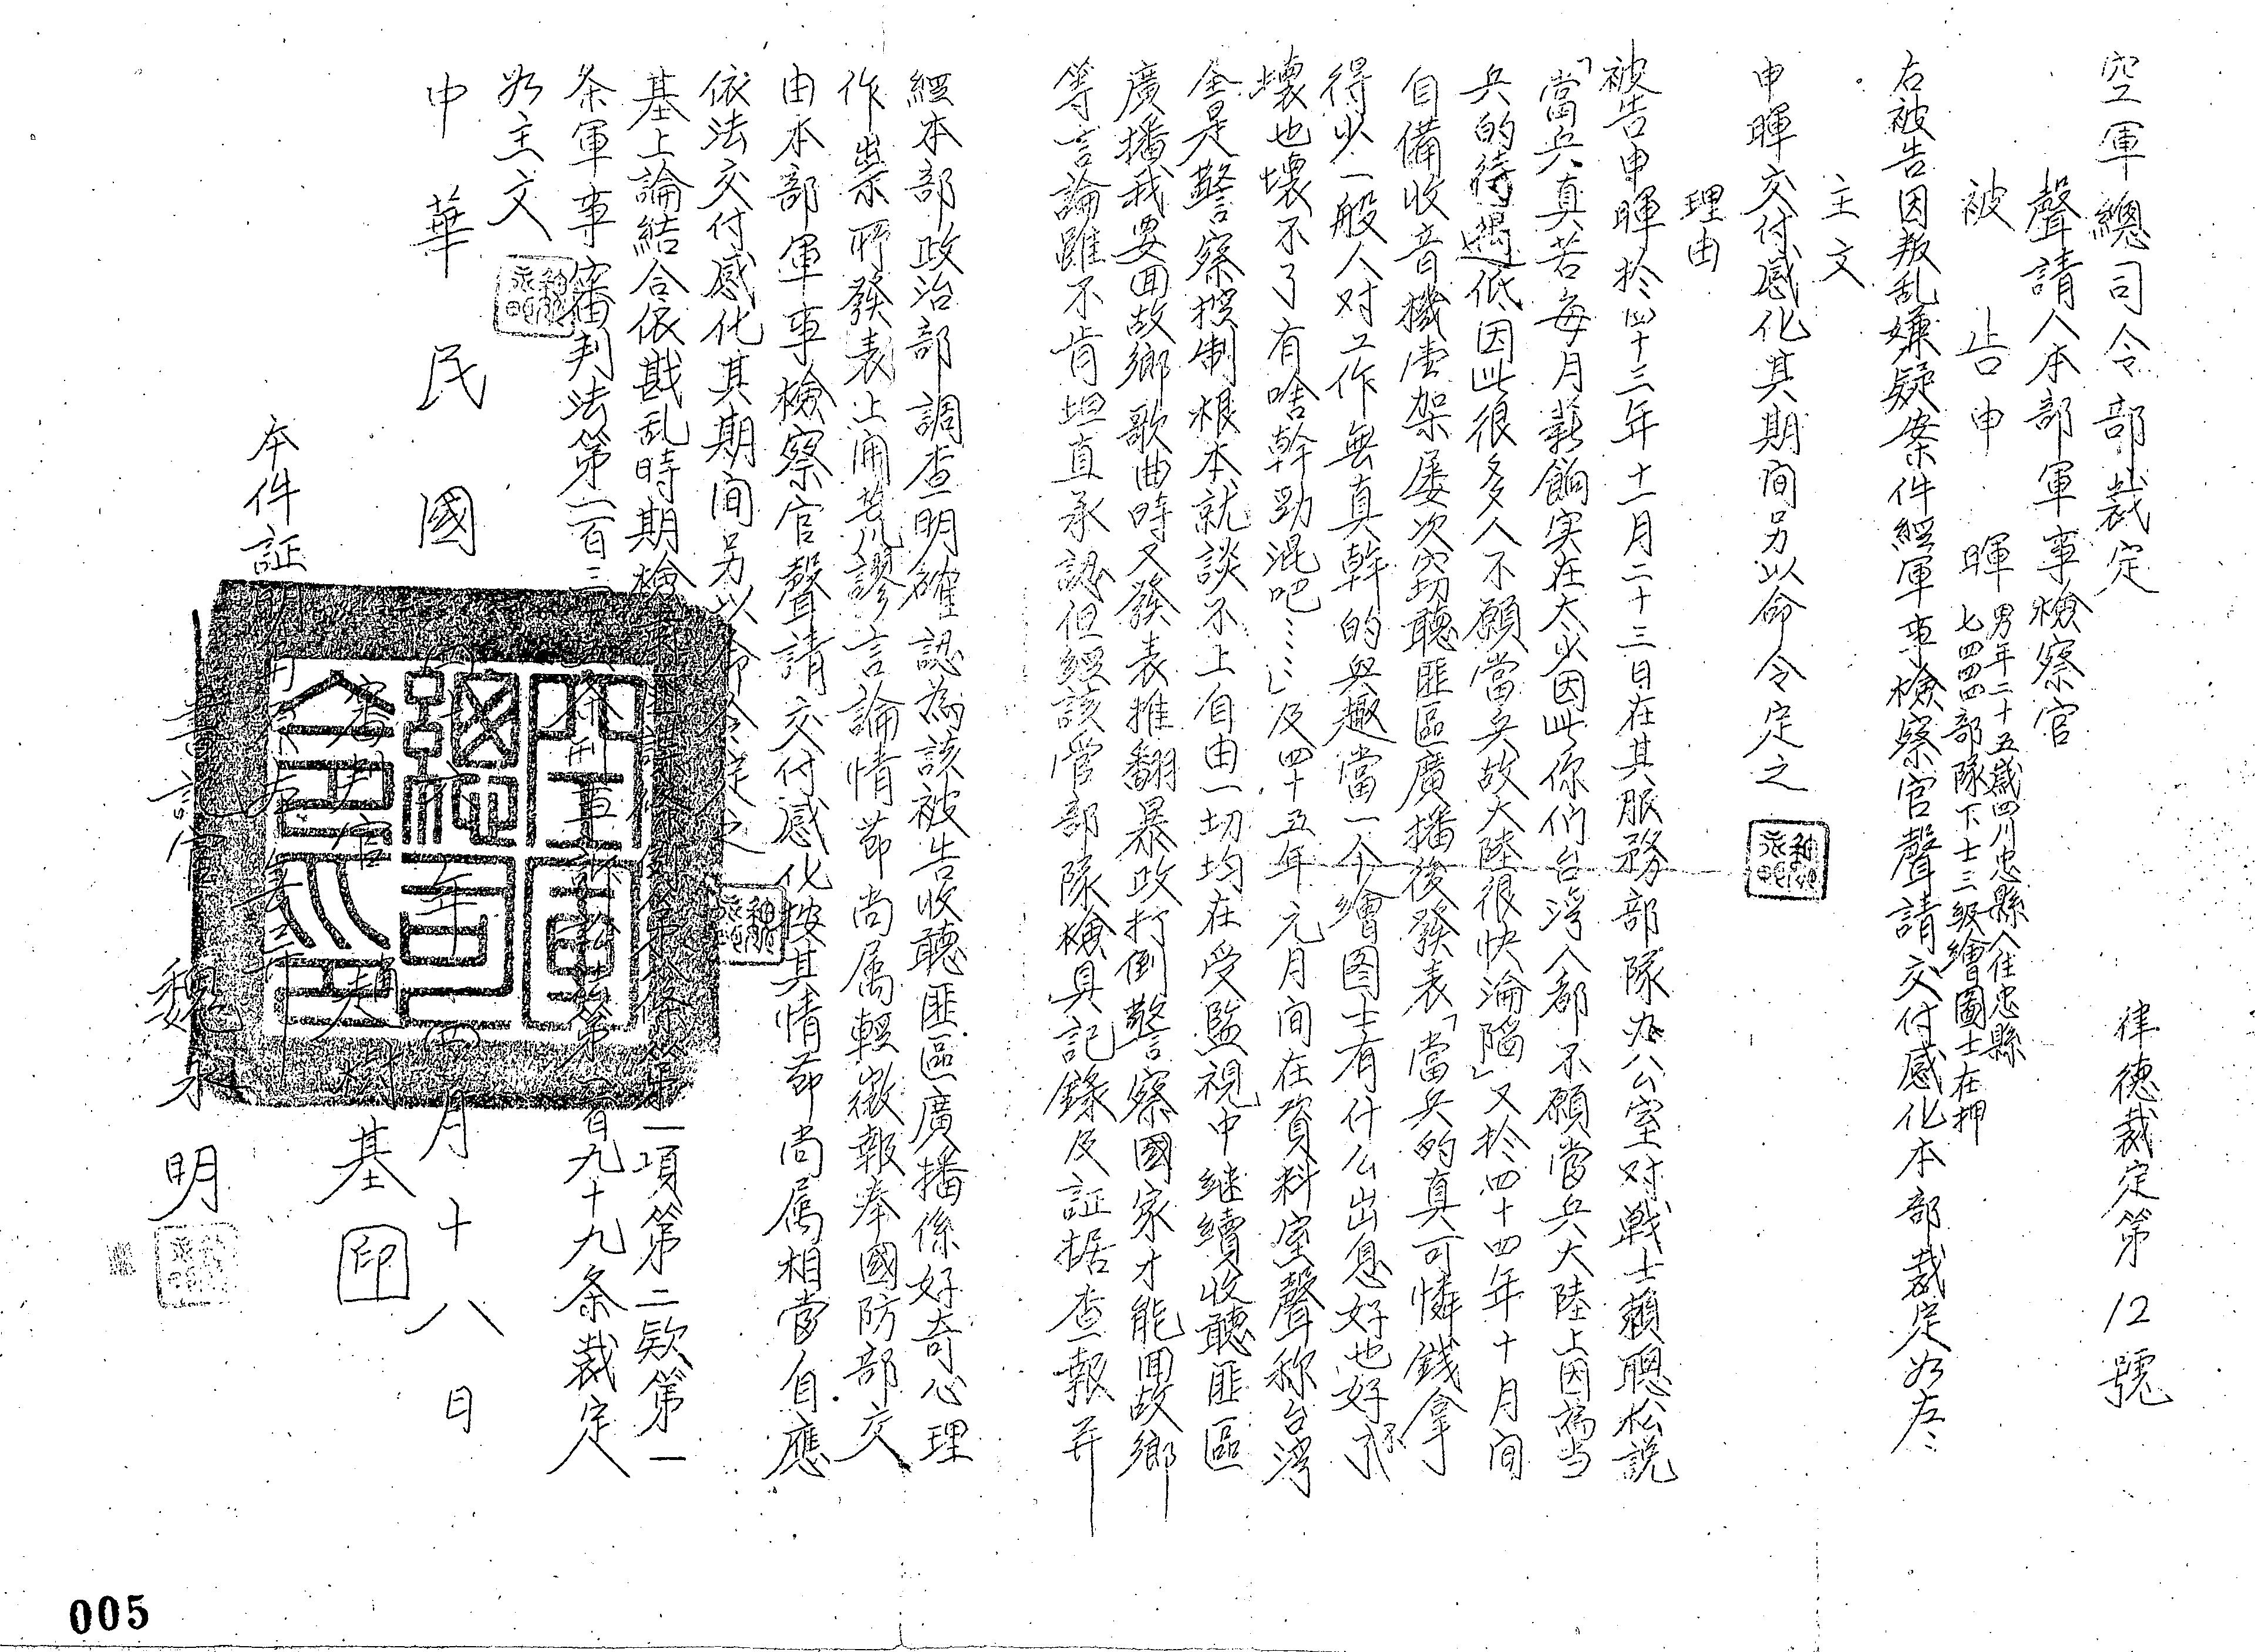 空軍總司令部裁定
律德裁定第12號
聲請人本部軍事檢察官
被告申暉 男年二十五歲四川忠縣人住忠縣
七四四四部隊下士三級繪圖士在押
右被告因叛乱嫌疑案件經軍事檢察官聲請交付感化本部裁定如左
主文
申暉交付感化其期间另以命令定之
理由
被告申暉於四十三年十一月二十三日在其服務部隊办公室对戦士賴聰松説
「當兵真苦每月薪餉实在太少因此你们台湾人都不願當兵大陸上因為当
兵的待遇低因此很多人不願當兵故大陸很快淪陷」又於四十四年十月间
自備收音機雲架屡次窃聽匪區廣播後發表「當兵的真可憐錢拿
得少一般人对工作無真幹的興趣當一个繪图士有什么出息好也好不了
壞也壞不了有啥幹勁混吧……」及四十五年元月间在資料室聲称台湾
全是警察控制根本就談不上自由一切均在受監視中继續收聽匪區
廣播我要回故鄉歌曲時又發表推翻暴政打倒警察國家才能回故鄉
等言論雖不肯坦直承認但經該管部隊檢具記錄及証据查報并
經本部政治部調查明確認為該被告收聽匪區廣播係好奇心理
作祟所發表上開荒謬言論情節尚属輕微報奉國防部交
由本部軍事檢察官聲請交付感化按其情節尚属相當自應
依法交付感化其期间另以命令定之
基上論結合依戡乱時期檢肅匪諜條例第八條第一項第二欵第一
条軍事審判法第一百三 条刑事訴訟法第一百九十九条裁定
如主文
中華民國 年 月十八日
審判官趙樹基 印
本件証明
書記官魏永明
005